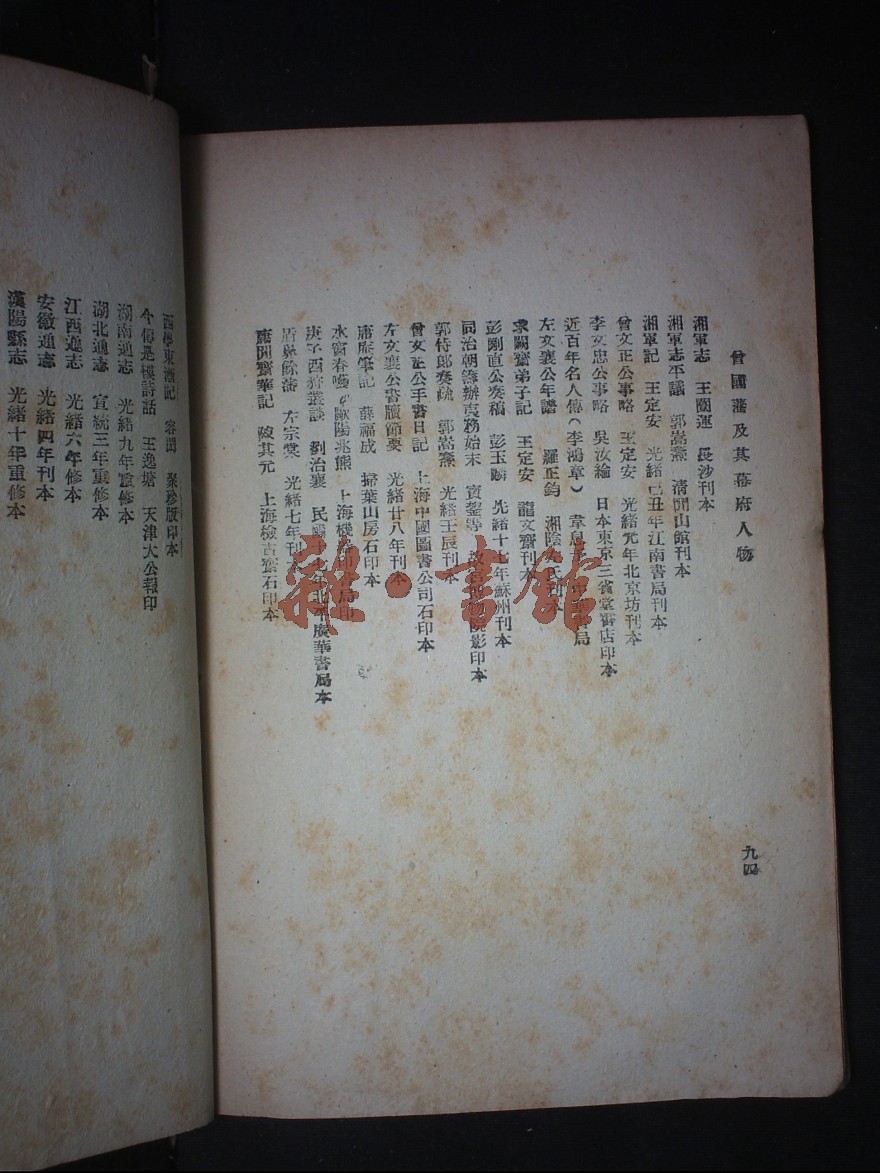 曾國藩及其幕府人物
湘軍志　王闓運　長沙刊本
湘軍志平議　郭嵩燾　清聞山館刊本
湘軍記　王定安　光緒己丑年江南書局刊本
曾文正公事略　王定安　光緒元年北京坊刊本
李文忠公事略　吳汝綸　日本東京三省堂書店印本
近百年名人傳(李鴻章)　韋息予　中華書局
左文襄公年譜　羅正鈞　湘陰左氏刊本
求闕齋弟子記　王定安　龍文齋刊本
彭剛直公奏稿　彭玉麟　光緒十七年蘇州刊本
同治朝籌辦夷務始末　寶鋆等　故宮博物院影印本
郭侍郎奏疏　郭嵩燾　光緒壬辰刊本
曾文正公手書日記　上海中國圖書公司石印本
左文襄公書牘節要　光緒廿八年刊本
庸庵筆記　薛福成　掃葉山房石印本
水窗春囈　歐陽兆熊　上海機器印書局印
庚子西狩叢談　劉治襄　民國年北平廣華書局本
盾鼻餘瀋　左宗棠　光緒七年刊本
庸閒齋筆記　陳其元　上海檢古齋石印本
九四
西學東漸記　容閎　聚珍版印本
今傳是樓詩話　王逸塘　天津大公報印
湖南通志　光緒九年重修本
湖北通志　宣統三年重修本
江西通志　光緒六年修本
安徽通志　光緒四年刊本
漢陽縣志　光緒十年重修本
雜·書館